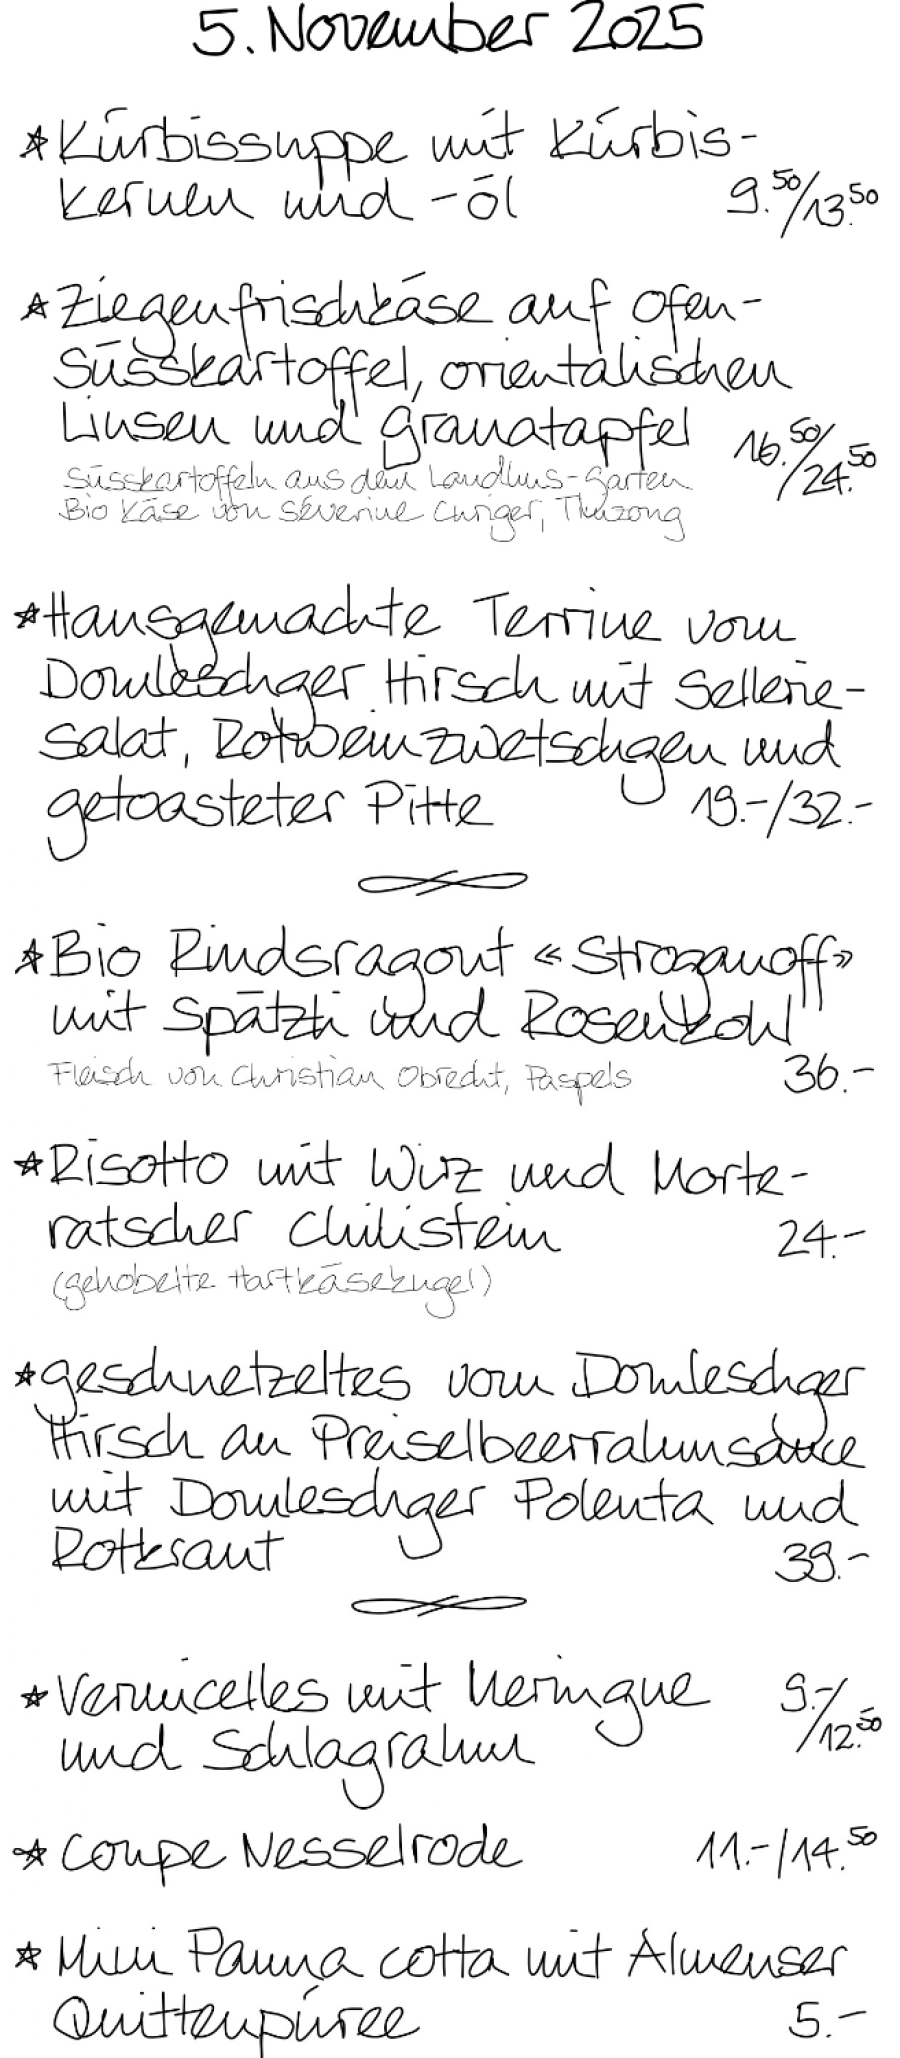 5. November 2025
* Kürbissuppe mit Kürbis-
kernen und -öl 9.50/13.50
* Ziegenfrischkäse auf Ofen-
Süsskartoffel, orientalischen
Linsen und Granatapfel 16.50/24.50
Süsskartoffeln aus dem Landhus-Garten
Bio Käse von Séverine Curiger, Thuzong
* Hausgemachte Terrine vom
Domleschger Hirsch mit Sellerie-
salat, Rotweinzwetschgen und
getoasteter Pitte 19.-/32.-
* Bio Rindsragout «Stroganoff»
mit Spätzli und Rosenkohl
Fleisch von Christian Obrecht, Paspels 36.-
* Risotto mit Wirz und Morte-
ratscher Chilistein 24.-
(gehobelte Hartkäsekugel)
* Geschnetzeltes vom Domleschger
Hirsch an Preiselbeerrahmsauce
mit Domleschger Polenta und
Rotkraut 39.-
* Vermicelles mit Meringue
und Schlagrahm 9.-/12.50
* Coupe Nesselrode 11.-/14.50
* Mini Panna cotta mit Almenser
Quittenpüree 5.-